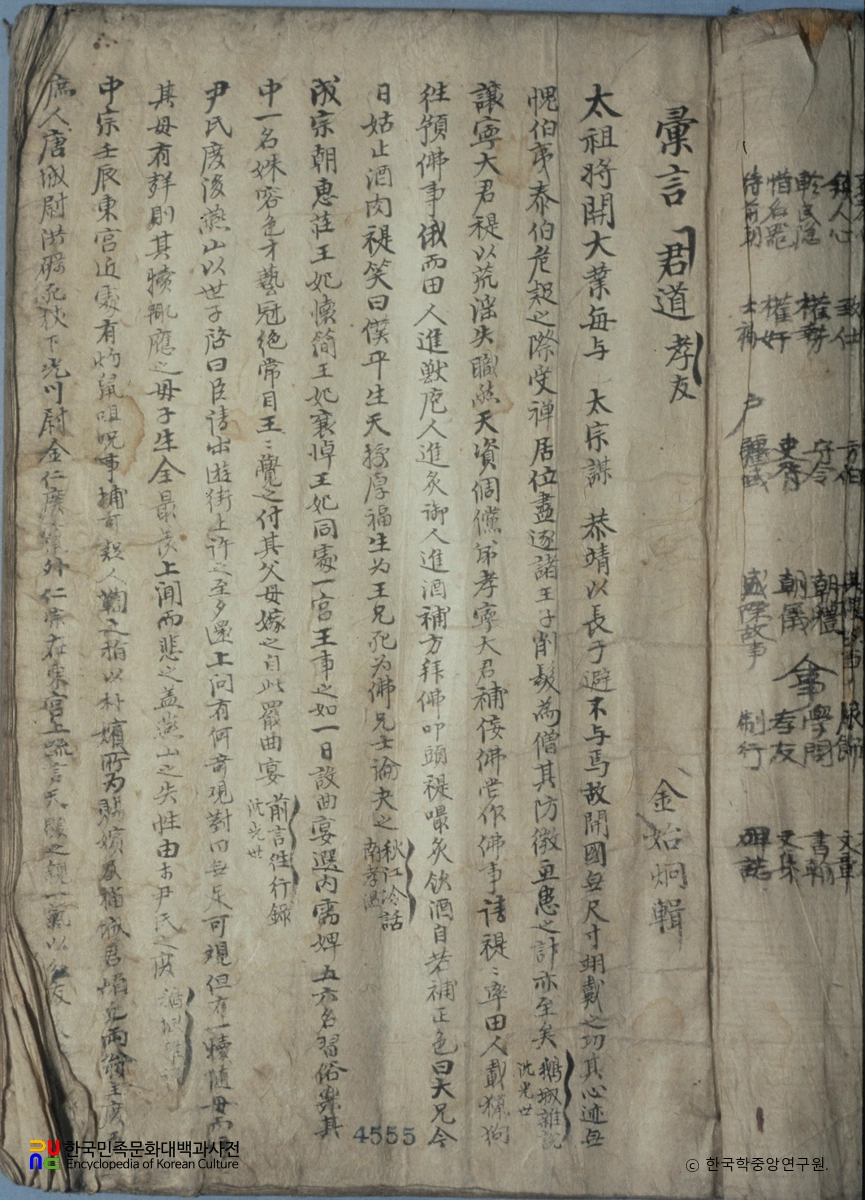 鎮人心 致仕 方伯 服飾 文章
軫民隱 權勢 守令 朝禮 學問 書朝
惜名器 權奸 史胥 朝儀 孝友 文集
待前朝 士禍 疆域 盛際故事 制行 碑誌
彙言 君道 孝友 金始炯輯
太祖將開大業每与 太宗謀 恭靖以長子避不与焉故開國無尺寸翊戴之功其心迹無
愧伯夷泰伯危起之際受禅居位盡逐諸王子削髮為僧其防微之計亦至矣 鵝城雜說 沈光世
讓寧大君禔以荒淫失職然天資倜儻弟孝寧大君補侫佛嘗作佛事請禔禔率田人載獵狗
徃預佛事俄而田人進獸庖人進炙御人進酒補方拜佛叩頭禔嘬炙飲酒自若補正色曰大兄今
日姑止酒肉禔笑曰僕平生天授厚福生为王兄死为佛兄士論夬之 秋江冷話 南孝温
成宗朝惠莊王妃懷簡王妃襄悼王妃同處一宮王事之如一日設曲宴選內需婢五六名習俗樂其
中一名姝容色才藝冠絶常目王王覺之付其父母嫁之自此罷曲宴 前言徃行錄 沈光世
尹氏廢後燕山以世子啓曰臣請出遊街上許之至夕還上问有何奇观對曰無足可覌但有一犢随母而
其母有聲則其犢輒應之母子生全最羡上闻而悲之盖燕山之失性由於尹氏之廢
中宗壬辰東宮近處有灼鼠咀呪事捕可疑人鞫之指以朴嬪所为賜嬪及福城君 兩翁主廢
庶人唐城尉洪礪死杖下光川尉金仁慶 外仁宗在東宮上疏言天 之親一氣以
4555
한국민족문화대백과사전
Encyclopedia of Korean Culture
© 한국학중앙연구원.